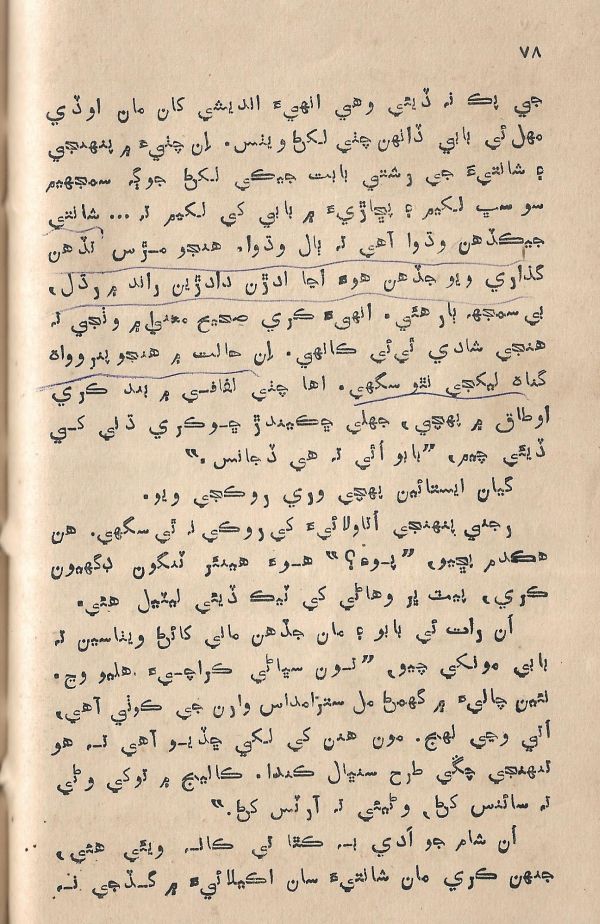 ٧٨
جي پڪ نہ ڏيئي وهي انهيءَ انديشي کان مان اوڏي
مهل ئي بابي ڏانهن چٺي لکڻ ويٺس. اِن چٺيءَ ۾ پنهنجي
۽ شانتيءَ جي رشتي بابت جيڪي لکڻ جوڳہ سمجهيم
سو سڀ لکيم ۽ پڇاڙيءَ ۾ بابي کي لکيم تہ ... شانتي
جيڪڏهن وڌوا آهي تہ ٻال وڌوا. هنجو مڙس تڏهن
گذاري ويو جڏهن هوءَ اڃا ادڙن دادڙين راند ۾ رڌل،
بي سمجهہ ٻار هئي. انهيءَ ڪري صحيح معنيٰ ۾ وٺجي تہ
هنجي شادي ئي ئي ڪانهي. اِن حالت ۾ هنجو پنروواه
گناه ليکجي نٿو سگهي. اها چٺي لفافي ۾ بند ڪري
اوطاق ۾ پهچي، جهلي ڇڪيندڙ ڇوڪري ڌلي کي
ڏيئي چيم، ”بابو اُٿي تہ هي ڏجانس.“
گيان ايستائين پهچي وري روڪجي ويو.
رجني پنهنجي اُتاولائيءَ کي روڪي نہ ٿي سگهي. هن
هڪدم پڇيو، ”پوءِ؟“ هوءَ هيٺئر ٽنگون ڊگهيون
ڪري، پيٽ ڀر وهاڻي کي ٽيڪ ڏيئي ليٽيل هئي.
اُن رات ئي بابو ۽ مان جڏهن ماني کائڻ ويٺاسين تہ
بابي مونکي چيو، ”تون سڀاڻي ڪراچيءَ هليو وڃ.
نئين چاليءَ ۾ گهمڻ مل سنترامداس وارن جي ڪوٺي آهي،
اُتي وڃي لهج. مون هنن کي لکي ڇڏيو آهي تہ هو
تنهنجي چڱي طرح سنڀال ڪندا. ڪاليج ۾ توکي وڻي
تہ سائنس کڻ، وڻيئي تہ آرٽس کڻ.“
اُن شام جو اَدي بہ ڪٿا تي ڪانہ ويئي هئي،
جنهن ڪري مان شانتيءَ سان اڪيلائيءَ ۾ گڏجي نہ